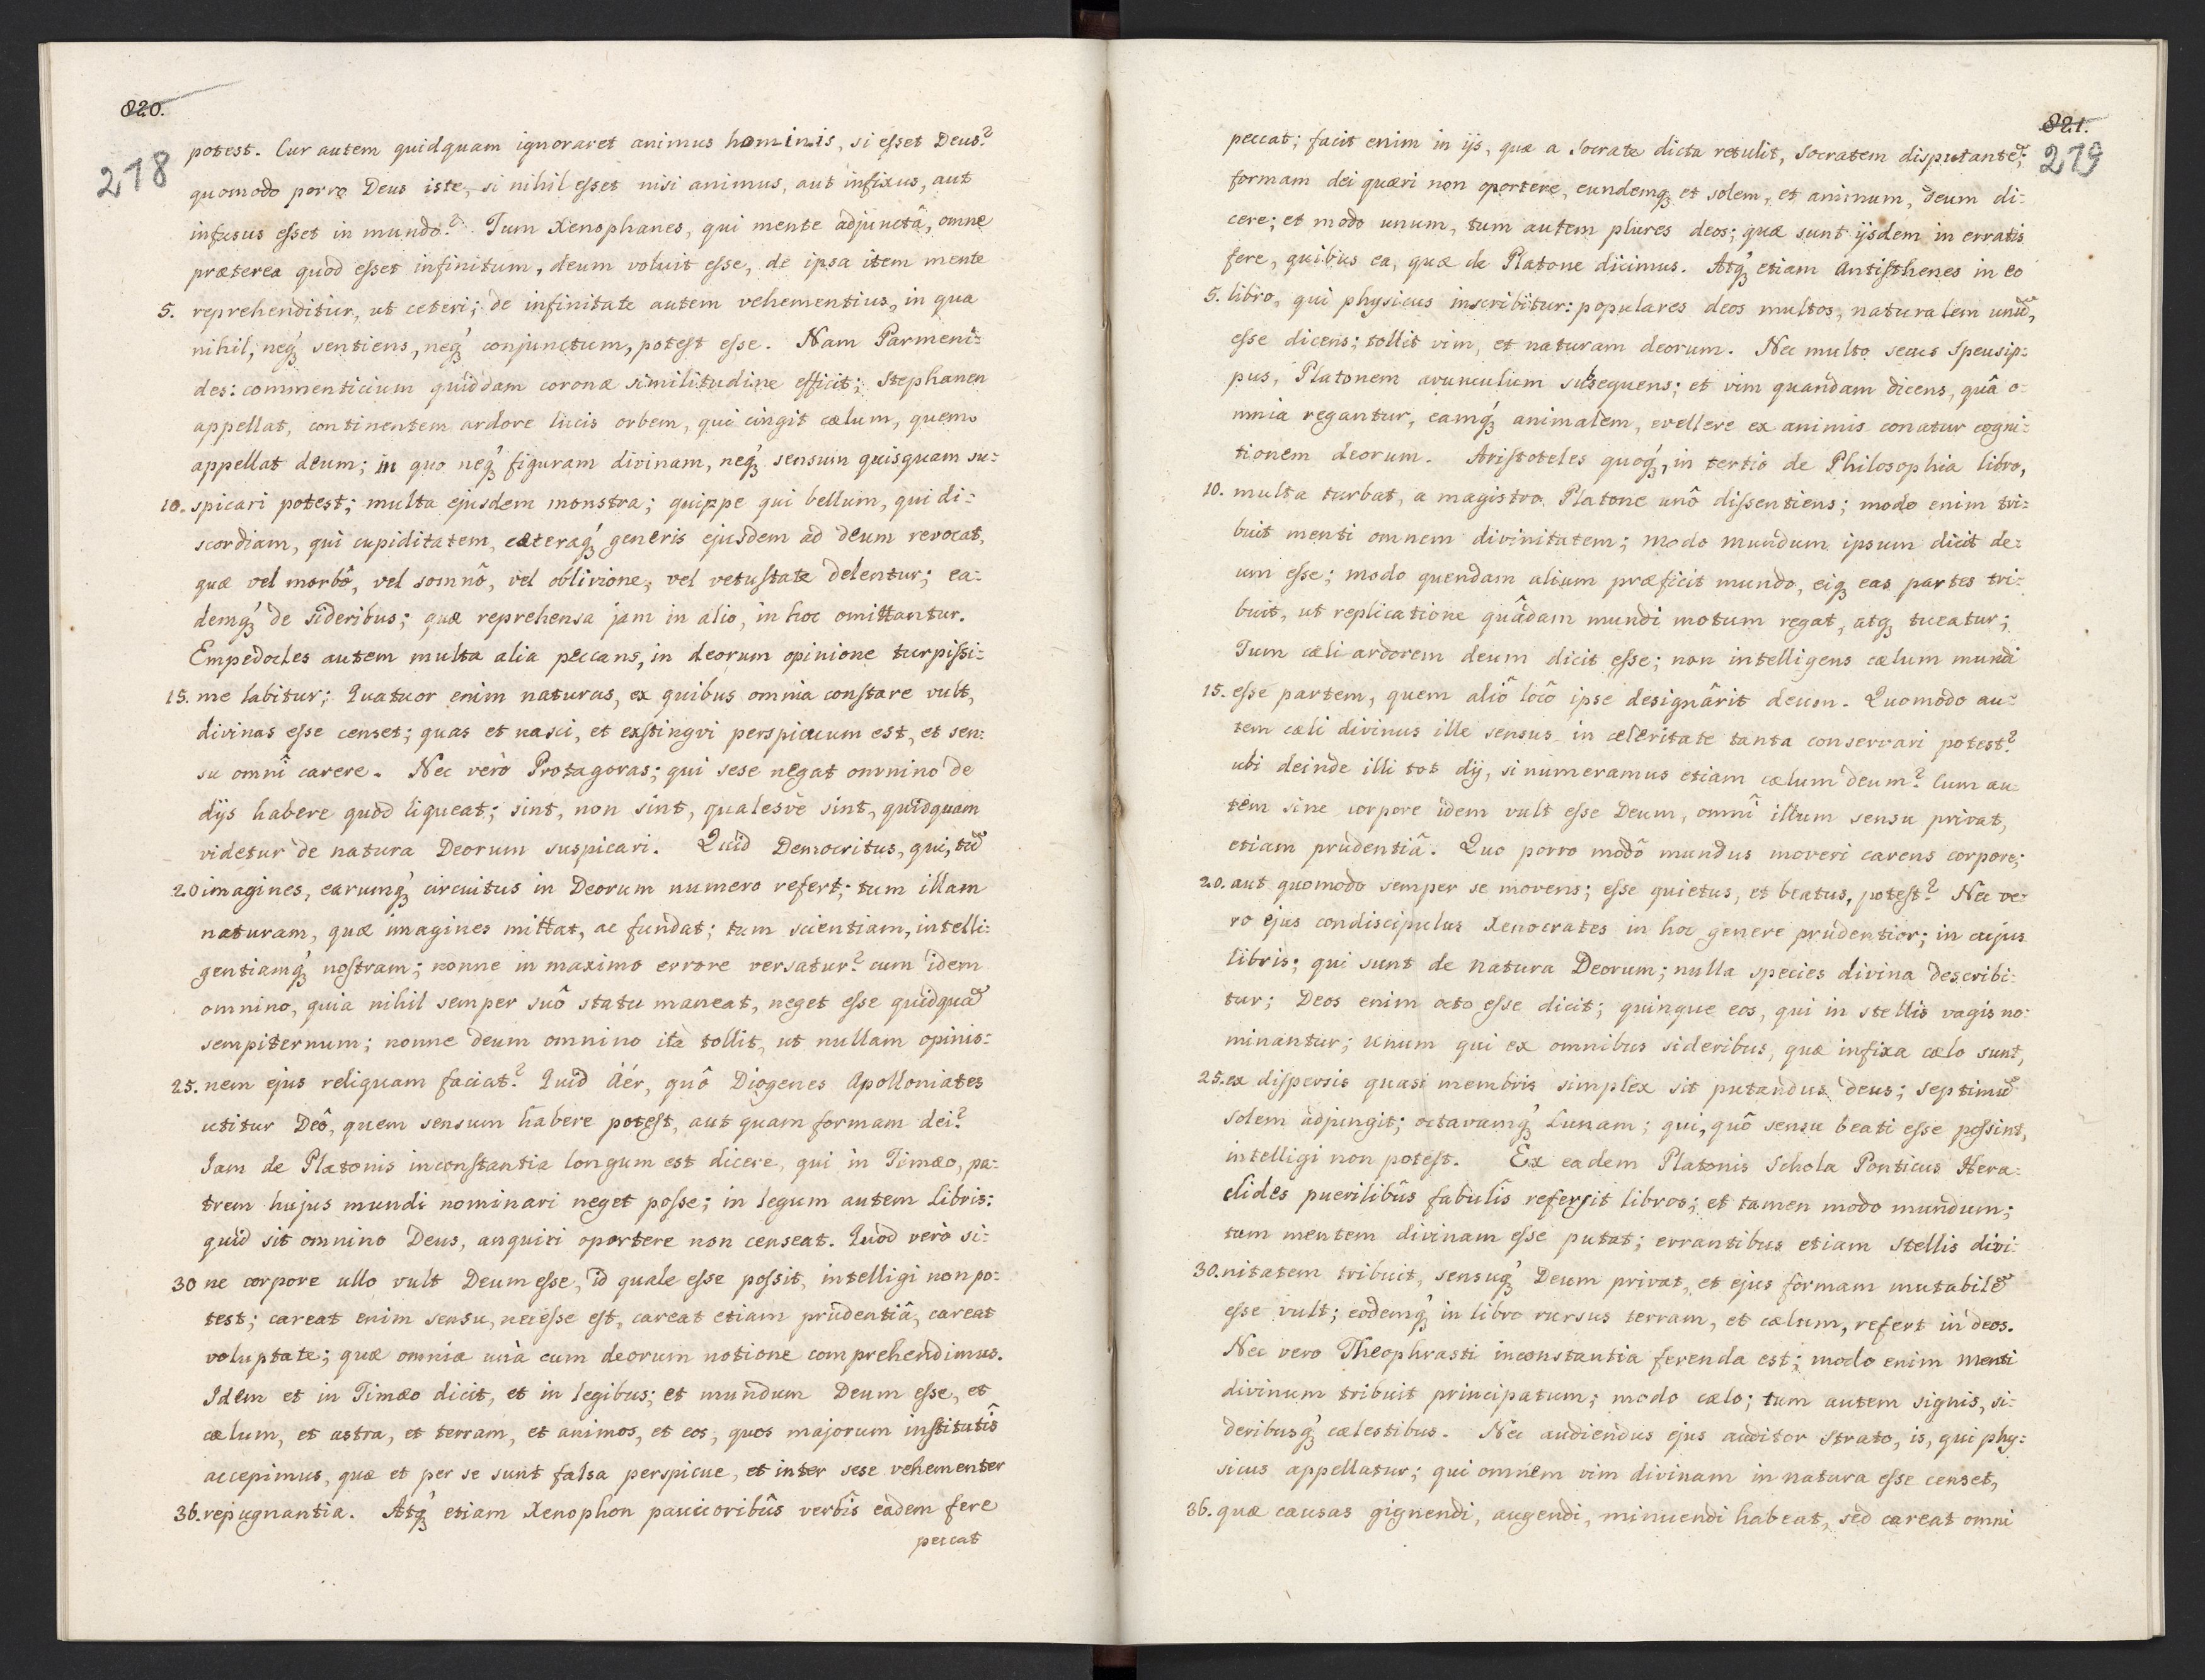 820.
218
potest. Cur autem quidquam ignoraret animus hominis, si esset Deus?
quomodo porro Deus iste, si nihil esset nisi animus, aut infixus, aut
infusus esset in mundo? Tum Xenophanes, qui mente adjunctâ, omne
præterea quod esset infinitum, deum voluit esse, de ipsa item mente
5. reprehenditur, ut ceteri; de infinitate autem vehementius, in qua
nihil, neq́ꝫ sentiens, neq́ꝫ conjunctum, potest esse. Nam Parmeni-
des: commenticium quiddam coronæ similitudine efficit; Stephanen
appellat, continentem ardore lucis orbem, qui cingit cælum, quem
appellat deum; in quo neq́ꝫ figuram divinam, neq́ꝫ sensum quisquam su-
10. spicari potest; multa ejusdem monstra; quippe qui bellum, qui di-
scordiam, qui cupiditatem, cæteraq́ꝫ generis ejusdem ad deum revocat,
quæ vel morbô, vel somnô, vel oblivione, vel vetustate delentur; ea-
demq́ꝫ de sideribus; quæ reprehensa jam in alio, in hoc omittantur.
Empedocles autem multa alia peccans, in deorum opinione turpissi-
15. me labitur; Quatuor enim naturas, ex quibus omnia constare vult,
divinas esse censet; quas et nasci, et exstingvi perspicuum est, et sen-
su omnî carere. Nec verò Protagoras; qui sese negat omnino de
dijs habere quod liqueat; sint, non sint, qualesve sint, quidquam
videtur de natura Deorum suspicari. Quid Democritus, qui, tũ
20 imagines, earumq́ꝫ circuitus in Deorum numero refert; tum illam
naturam, quæ imagines mittat, ac fundat; tum scientiam, intelli-
gentiamq́ꝫ nostram; nonne in maximo errore versatur? cum idem
omnino, quia nihil semper suô statu maneat, neget esse quidquã
sempiternum; nonne deum omnino ità tollit, ut nullam opinio-
25. nem ejus reliquam faciat? Quid Áér, quô Diogenes Apolloniates
utitur Deô, quem sensum habere potest, aut quam formam dei?
Jam de Platonis inconstantia longum est dicere, qui in Timæo, pa-
trem hujus mundi nominari neget posse; in legum autem libris:
quid sit omnino Deus, anquiri oportere non censeat. Quod verò si-
30 ne corpore ullo vult Deum esse, id quale esse possit, intelligi non po-
test; careat enim sensu, necesse est, careat etiam prudentiâ, careat
voluptate; quæ omnia unà cum deorum notione comprehendimus.
Idem et in Timæo dicit, et in legibus; et mundum Deum esse, et
cælum, et astra, et terram, et animos, et eos, quos majorum institutîs
accepimus, quæ et per se sunt falsa perspicue, et inter sese vehementer
36. repugnantia. Atq́ꝫ etiam Xenophon paucioribûs verbîs eadem fere
peccat
821.
219
peccat; facit enim in ijs, quæ a Socrate dicta retulit, Socratem disputantẽ;
formam dei quæri non oportere, eundemqꝫ et solem, et animum, deum di-
cere; et modo unum, tum autem plures deos; quæ sunt ijsdem in erratis
fere, quibus ea, quæ de Platone dicimus. Atq́ꝫ etiam Antisthenes in eo
5. libro, qui physicus inscribitur: populares deos multos, naturalem unũ,
esse dicens; tollit vim, et naturam deorum. Nec multo secus Speusip-
pus, Platonem avunculum subsequens; et vim quandam dicens, quâ o-
mnia regantur, eamq́ꝫ animalem, evellere ex animis conatur cogni-
tionem deorum. Aristoteles quoq́ꝫ, in tertio de Philosophia libro,
10. multa turbat, a magistro Platone unô dissentiens; modo enim tri-
buit menti omnem divinitatem; modo mundum ipsum dicit de-
um esse; modo quendam alium præficit mundo, eiqꝫ eas partes tri-
buit, ut replicatione quâdam mundi motum regat, atqꝫ tueatur;
Tum cæli ardorem deum dicit esse; non intelligens cælum mundi
15. esse partem, quem aliô locô ipse designârit deum. Quomodo au-
tem cæli divinus ille sensus in celeritate tanta conservari potest?
ubi deinde illi tot dij, si numeramus etiam cælum deum? Cum au-
tem sine corpore idem vult esse Deum, omnî illum sensu privat,
etiam prudentiâ. Quo porro modô mundus moveri carens corpore;
20. aut quomodo semper se movens; esse quietus, et beatus, potest? Nec ve-
ro ejus condiscipulus Xenocrates in hoc genere prudentior; in cujus
libris; qui sunt de Natura Deorum; nulla species divina describi-
tur; Deos enim octo esse dicit; quinque eos, qui in stellis vagis no-
minantur; unum qui ex omnibus sideribus, quæ infixa cælo sunt,
25. ex dispersis quasi membris simplex sit putandus deus; septimũ
solem adjungit; octavamq́ꝫ Lunam; qui, quô sensu beati esse possint,
intelligi non potest. Ex eadem Platonis Schola Ponticus Hera-
clides puerilibûs fabulîs refersit libros; et tamen modo mundum;
tum mentem divinam esse putat; errantibus etiam stellis divi-
30. nitatem tribuit, sensuq́ꝫ Deum privat, et ejus formam mutabilẽ
esse vult; eodemq́ꝫ in libro rursus terram, et cælum, refert in deos.
Nec vero Theophrasti inconstantia ferenda est; modo enim menti
divinum tribuit principatum; modo cælo; tum autem signis, si-
deribusq́ꝫ cælestibus. Nec audiendus ejus auditor Strato, is, qui phy-
sicus appellatur; qui omnem vim divinam in natura esse censet,
36. quæ causas gignendi, augendi, minuendi habeat, sed careat omni